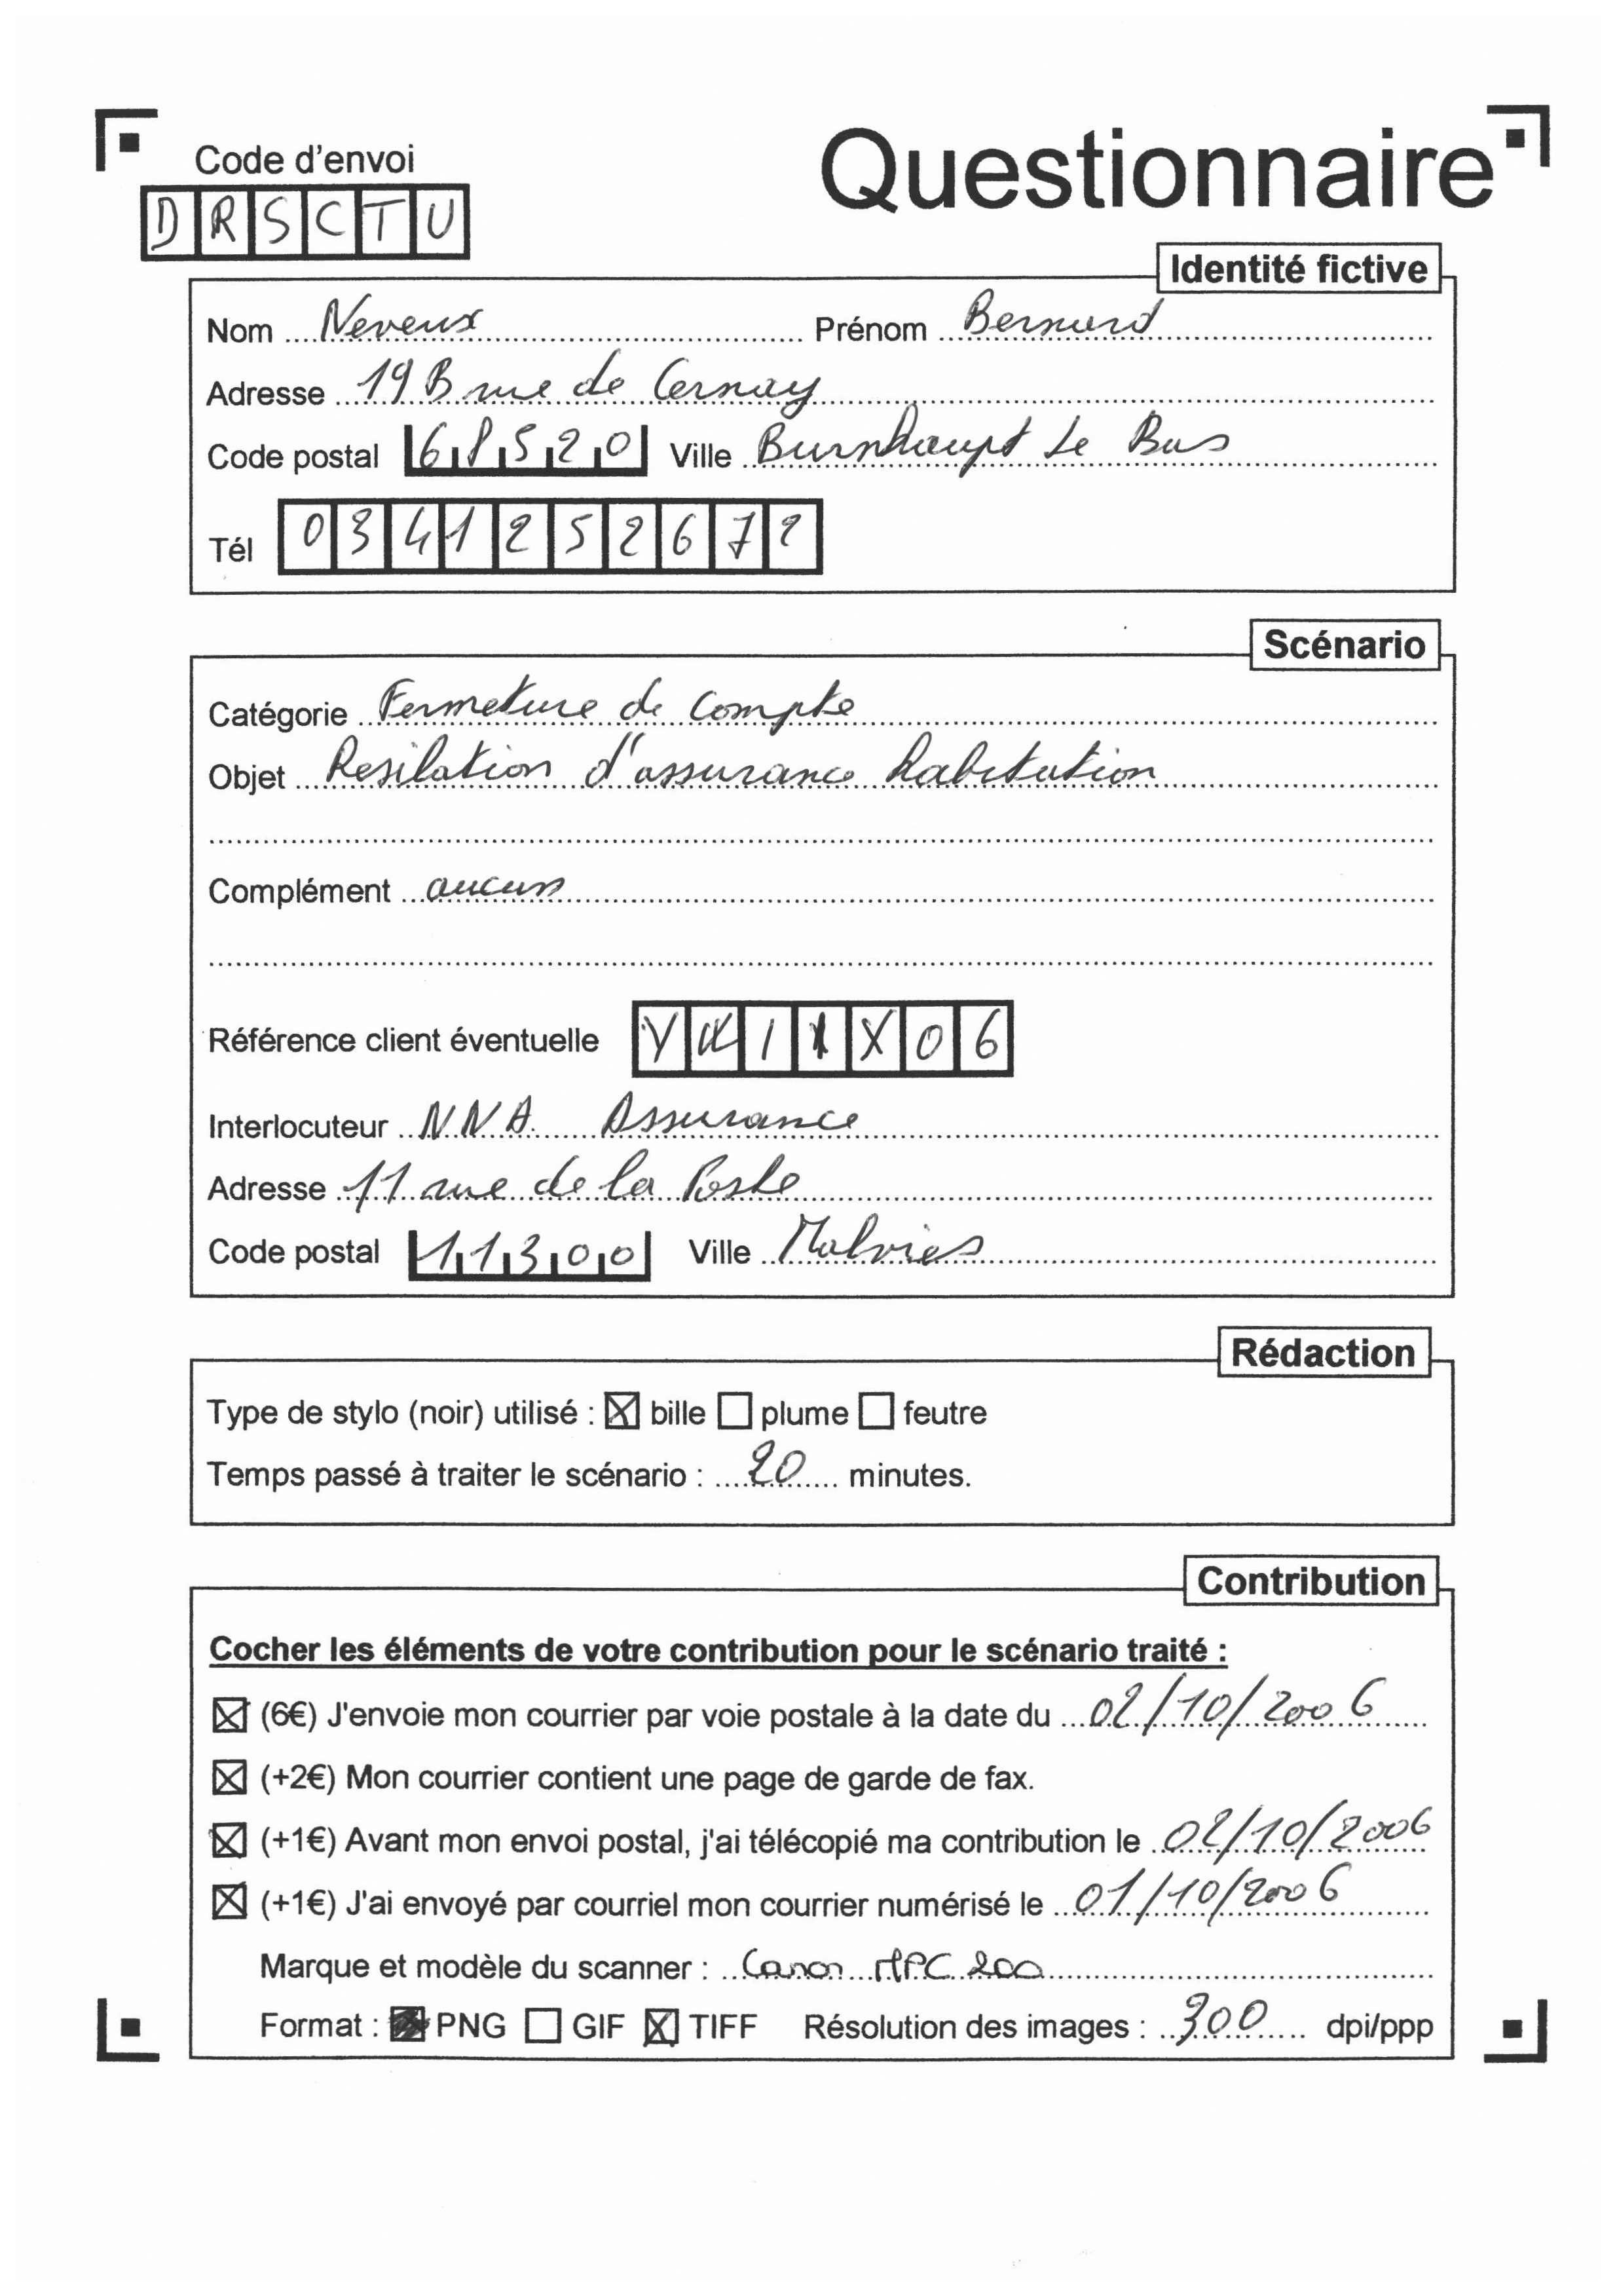 Code d'envoi
Questionnaire
DRSCTU
Identité fictive
Nom Neveux Prénom Bernard
Adresse 19 B rue de Cernay
Code postal 68520 Ville Burnhaupt Le Bas
Tél 0341252672
Scénario
Catégorie Fermeture de compte
Objet Resilation d'assurance habitation
Complément aucun
Référence client éventuelle
Interlocuteur NNA Assurance
Adresse 11 rue de la Poste
Code postal 11300 Ville Malvies
Rédaction
Type de stylo (noir) utilisé : bille plume feutre
Temps passé à traiter le scénario : 20 minutes.
Contribution
Cocher les éléments de votre contribution pour le scénario traité :
(6€) J'envoie mon courrier par voie postale à la date du 02/10/2006
(+2€) Mon courrier contient une page de garde de fax.
(+1€) Avant mon envoi postal, j'ai télécopié ma contribution le 02/10/2006
(+1€) J'ai envoyé par courriel mon courrier numérisé le 01/10/2006
Marque et modèle du scanner : Canon MPC 200
Format : PNG GIF TIFF Résolution des images : 300 dpi/ppp